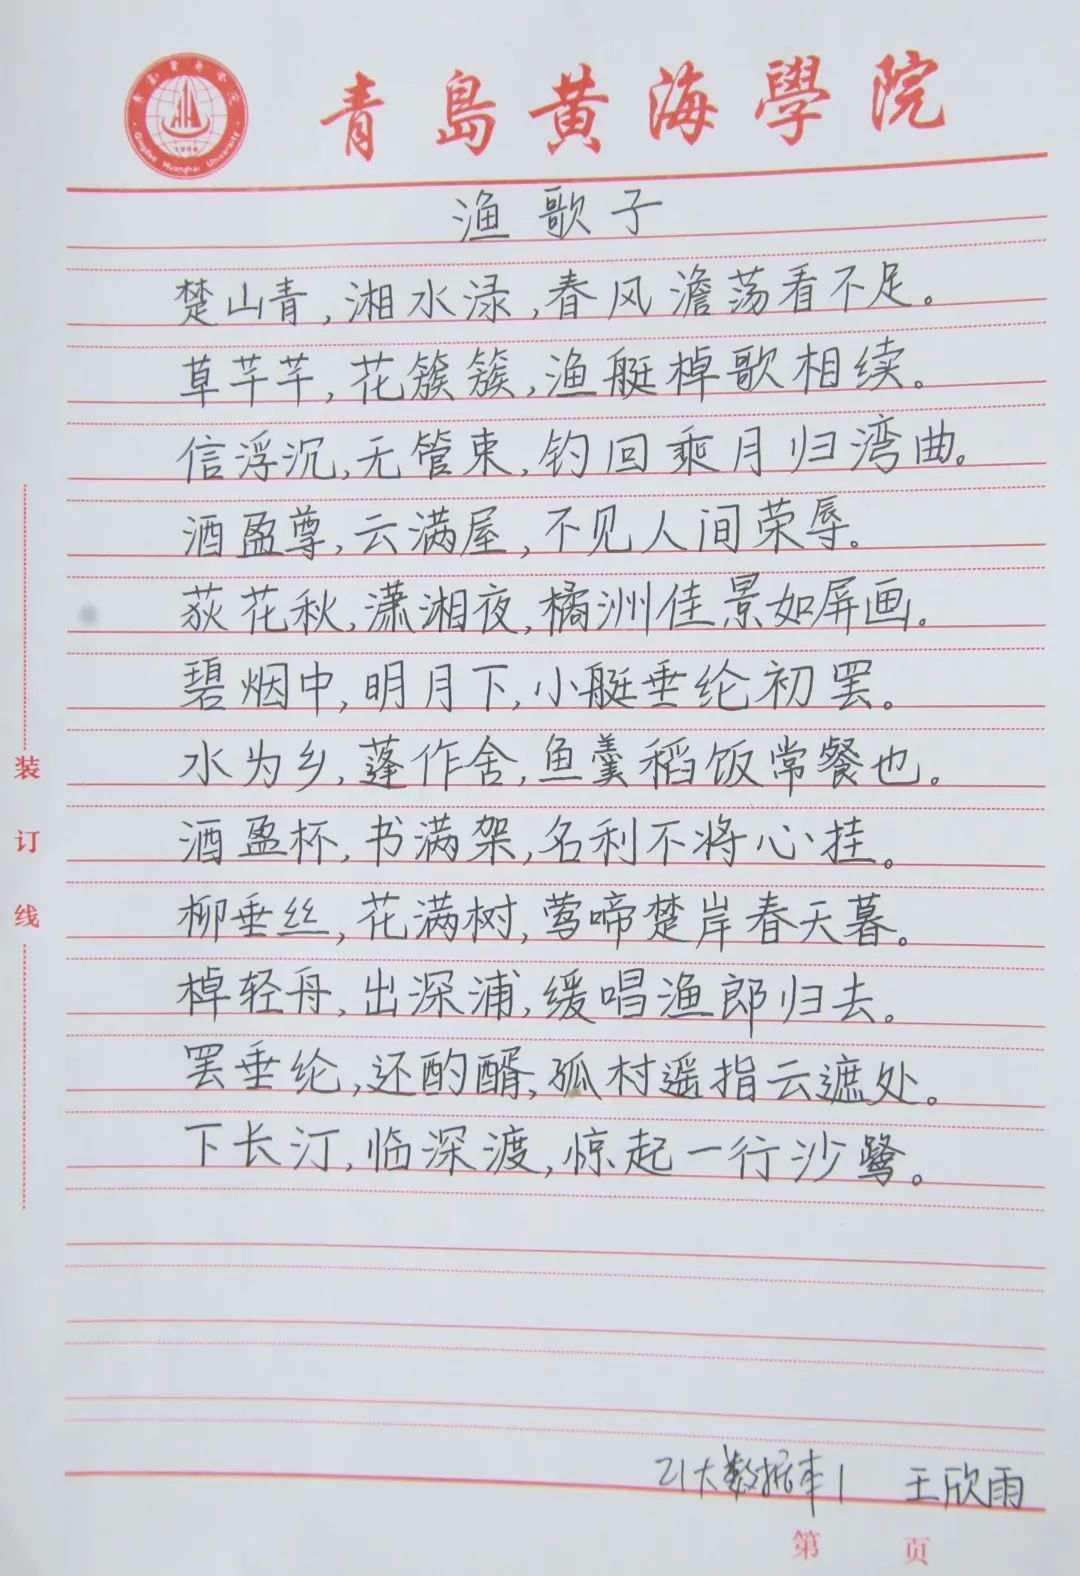 青島黄海學院
青岛黄海学院
1996
Qingdao Huanghai University
渔歌子
楚山青,湘水渌,春风澹荡看不足。
草芊芊,花簇簇,渔艇棹歌相续。
信浮沉,无管束,钓回乘月归湾曲。
酒盈尊,云满屋,不见人间荣辱。
荻花秋,潇湘夜,橘洲佳景如屏画。
碧烟中,明月下,小艇垂纶初罢。
水为乡,蓬作舍,鱼羹稻饭常餐也。
酒盈杯,书满架,名利不将心挂。
柳垂丝,花满树,莺啼楚岸春天暮。
棹轻舟,出深浦,缓唱渔郎归去。
罢垂纶,还酌醑,孤村遥指云遮处。
下长汀,临深渡,惊起一行沙鹭。
装订线
21大数据本1 王欣雨
第 页